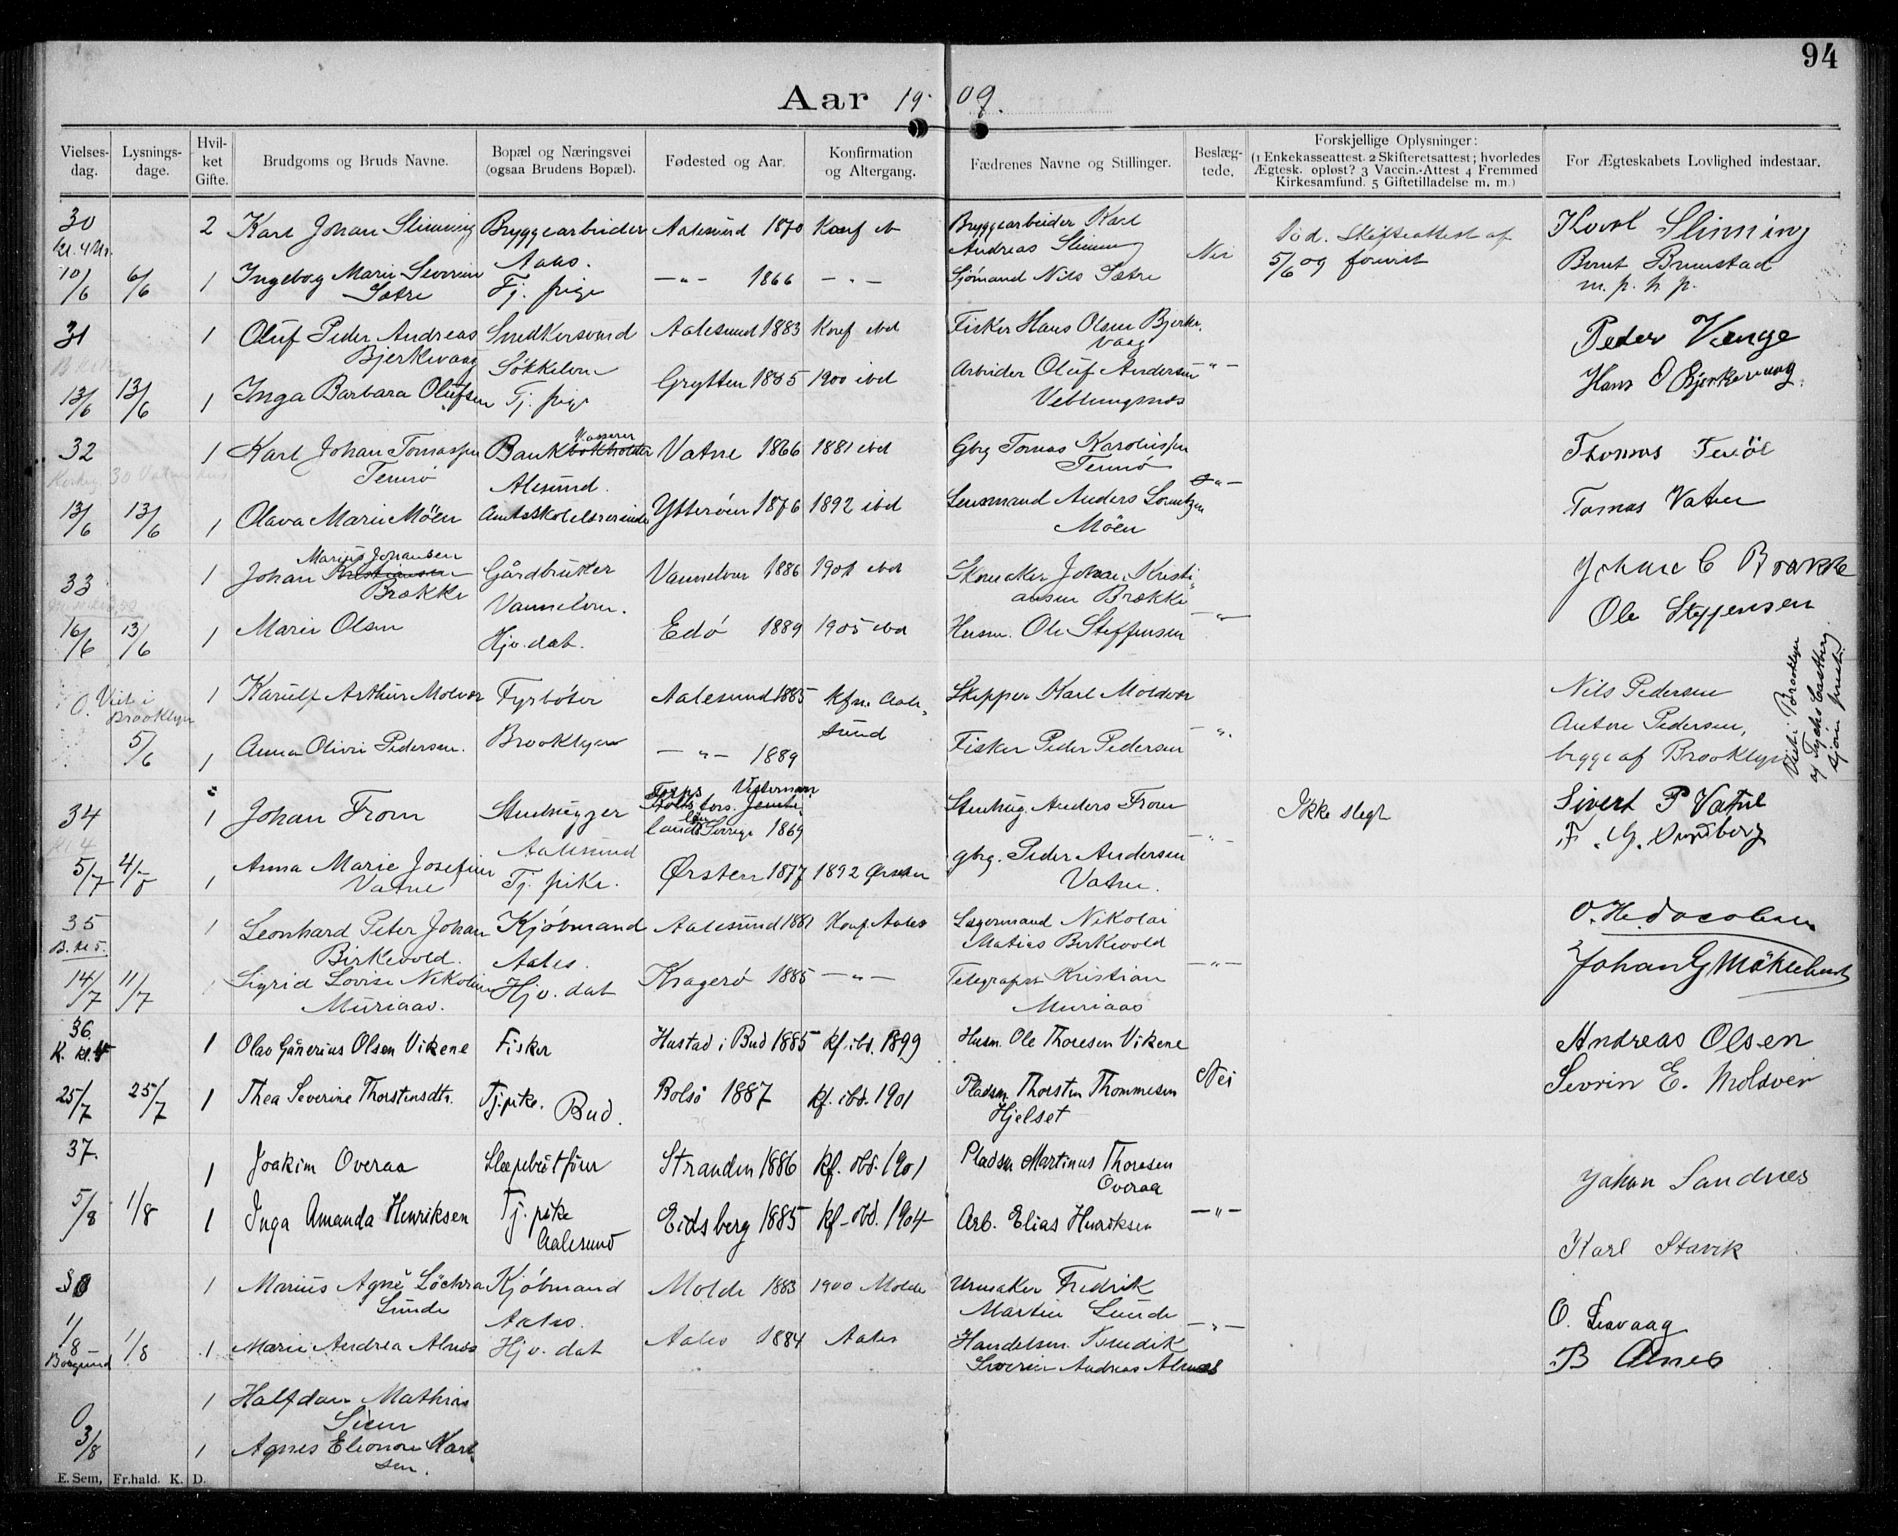 94
Aar 19 09.
Vielses-dag. Lysnings-dage. Hvil-ket Gifte. Brudgoms og Bruds Navne. Bopæl og Næringsvei (ogsaa Brudens Bopæl). Fødested og Aar. Konfirmation og Altergang. Fædrenes Navne og Stillinger. Beslæg-tede. Forskjellige Oplysninger: (1 Enkekasseattest. 2 Skifteretsattest; hvorledes Ægtesk. opløst? 3 Vaccin.-Attest 4 Fremmed Kirkesamfund. 5 Giftetilladelse m. m.) For Ægteskabets Lovlighed indestaar.
30 2 Karl Johan Slinning Bryggearbeider Aalesund 1870 Konf Bryggearbeider Karl
Kl. 4 Aaes. Andreas Slinning Nei Skifteattest af Karl Slinning
10/6 6/6 1 Ingeborg Marie Severine Tj. pige —"— 1866 —"— Sjömand Nils Sætre 5/6 09 forevist Bernt
Sætre m. p. h. p.
31 1 Oluf Peder Andreas Snedkersvend Aalesund 1883 Konf ibd Fisker Hans Olsen Bjerke- Peder Vænge
Bjerkevaag Søkkelven vaag
13/6 13/6 1 Inga Barbara Olufsen Tj. pige Grytten 1885 1900 ibd Arbeider Oluf Andersen —"— Hans O Bjerkevaag.
Veblungsnæs
32 1 Karl Johan Tomassen Bank bokholder Kasserer Vatne 1866 1881 ibd Gbrg Tomas Karolussen Thomas
Tennø Alesund. Tennø
13/6 13/6 1 Olava Marie Möen Amtsskolelærerinde Ytterøen 1876 1892 ibd Lensmand Anders Lorentzen —"— Tomas Vatne
Möen
33 1 Johan Kristiansen Marius Johansen Gårdbruker Vannelven 1886 1901 ibd Skomaker Johan Kristi- Johan C Brække
Brække Vannelven. ansen Brække
16/6 13/6 1 Marie Olsen Hjv. dat. Edö 1889 1905 ibd Husm. Ole Steffensen —"— Ole Steffensen
O. Viet i Brooklyn 1 Karulf Arthur Molvær Fyrböter Aalesund 1885 kfm. Aale- Skipper Karl Moldvær Nils Pedersen
sund Anton Pedersen,
5/6 1 Anna Olivie Pedersen. Brooklyn —"— 1889 Fisker Peder Pedersen —"— begge af Brooklyn
Viet i Brooklyn
af Tycho Castberg
sjöm. prest.
34 1 Johan From Stenhugger Sverige 1869 Stenhug. Anders From —"— Ikke slegt Sivert P Vatne
Aalesund F. G. Sundberg
5/7 4/7 1 Anna Marie Josefine Tj. pike. Ørsten 1877 1892 Ørsten gbrg. Peder Andersen
Vatne Vatne.
35 1 Leonhard Peter Johan Kjöbmand Aalesund 1881 Konf. Aales Lagermand Nikolai O. H. Jacobsen
B. kl 5. Birkevold. Aales. Matias Birkevold
14/7 11/7 1 Sigrid Lovise Nikoline Hjv. dat Kragerø 1885 —"— Telegrafist Kristian —"— Johan G Möklebust
Muriaas. Muriaas
36. 1 Olav Gunerius Olsen Vikene Fisker Hustad i Bud 1885 kf. ibd. 1899 Husm. Ole Thoresen Vikene Andreas Olsen
K. kl 5
25/7 25/7 1 Thea Severine Thorstensdtr. Tj. pike. Bud. Bolsø 1887 kf. ibd. 1901 Pladsm. Thorsten Thommesen Nei Sevrin E. Moldver
Hjelset
37. 1 Joakim Overaa Slæpebåtfører Stranden 1886 kf. ibd. 1901 Pladsm Martinus Thoresen
Overaa Johan Sandnes
5/8 1/8 1 Inga Amanda Henriksen Tj. pike Eidsberg 1885 kf. ibd. 1904 Arb. Elias Henriksen —"—
Aalesund Karl Stavik
38 1 Marius Agnë Löchra Kjöbmand Molde 1883 1900 Molde Urmaker Fredrik
Lunde Aales. Martin Lunde O. Leervaag
1/8 1/8 1 Marie Andrea Alnæs Hjv. dat Aales 1884 Aales Handelsm. Bendik —"— B Alnes
Borgund Severin Andreas Alnæs
1 Halfdan Mathias
O Siem
3/8 1 Agnes Elionore Karl-
sen.
E. Sem, Fr.hald. K. D.